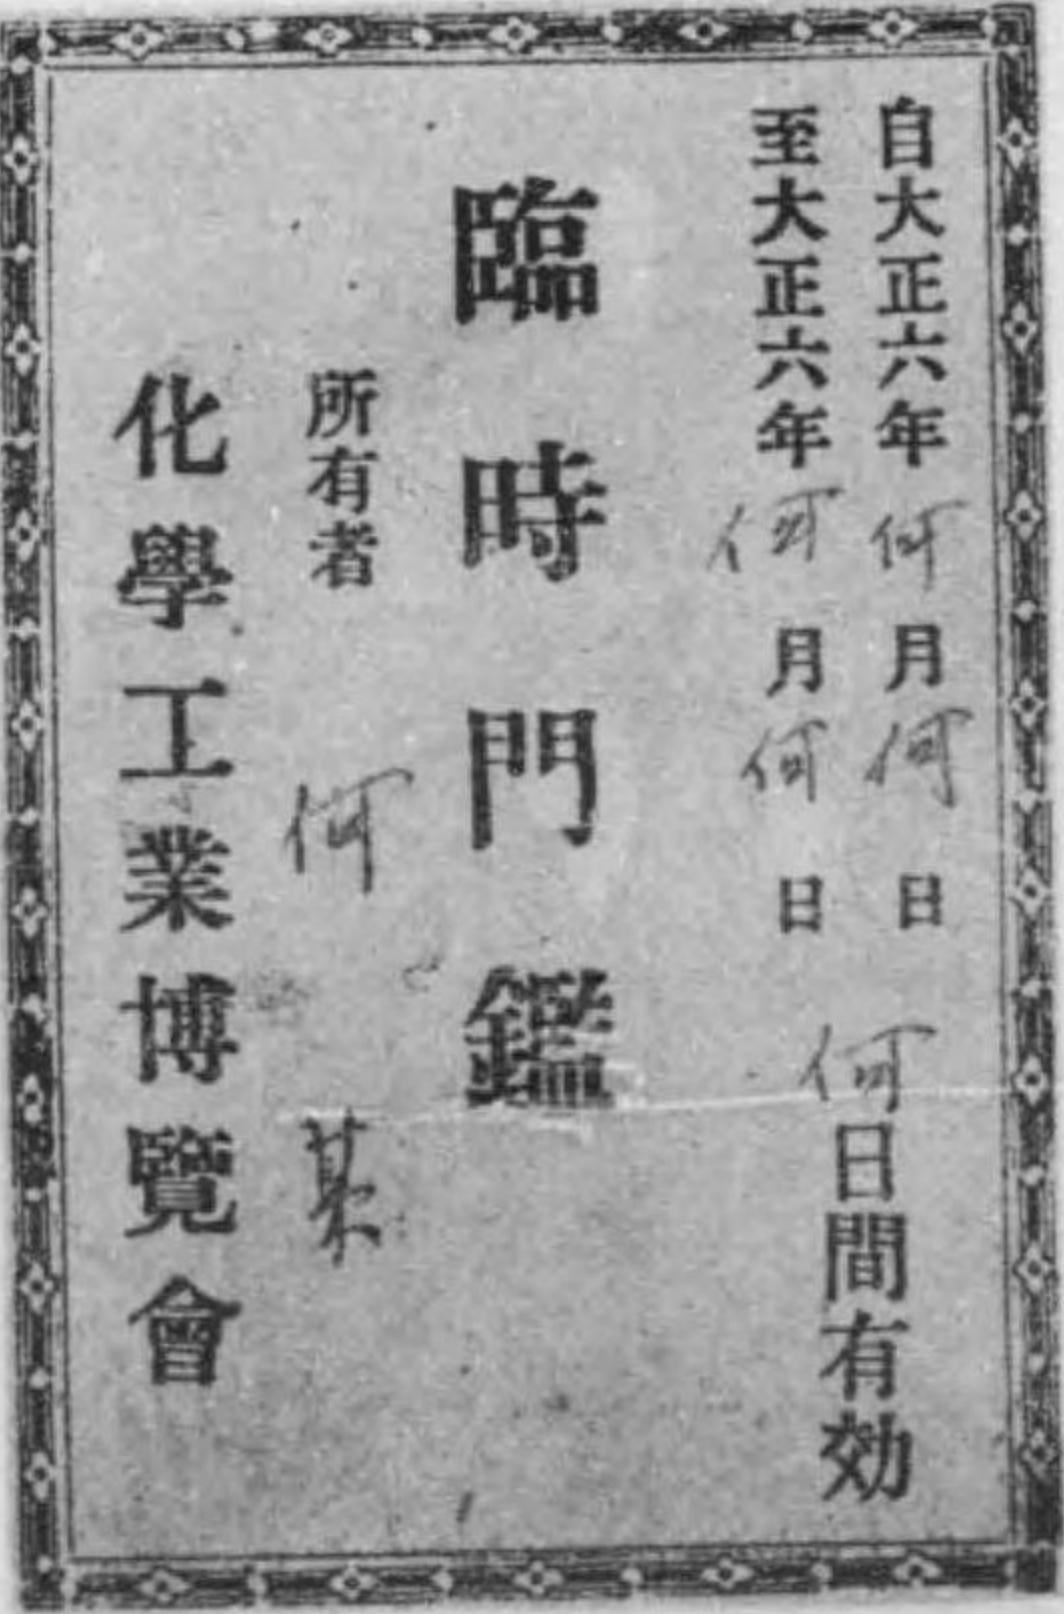 自大正六年何月何日
至大正六年何月何日
何日間有効
臨時門鑑
所有者 何某
化學工業博覽會